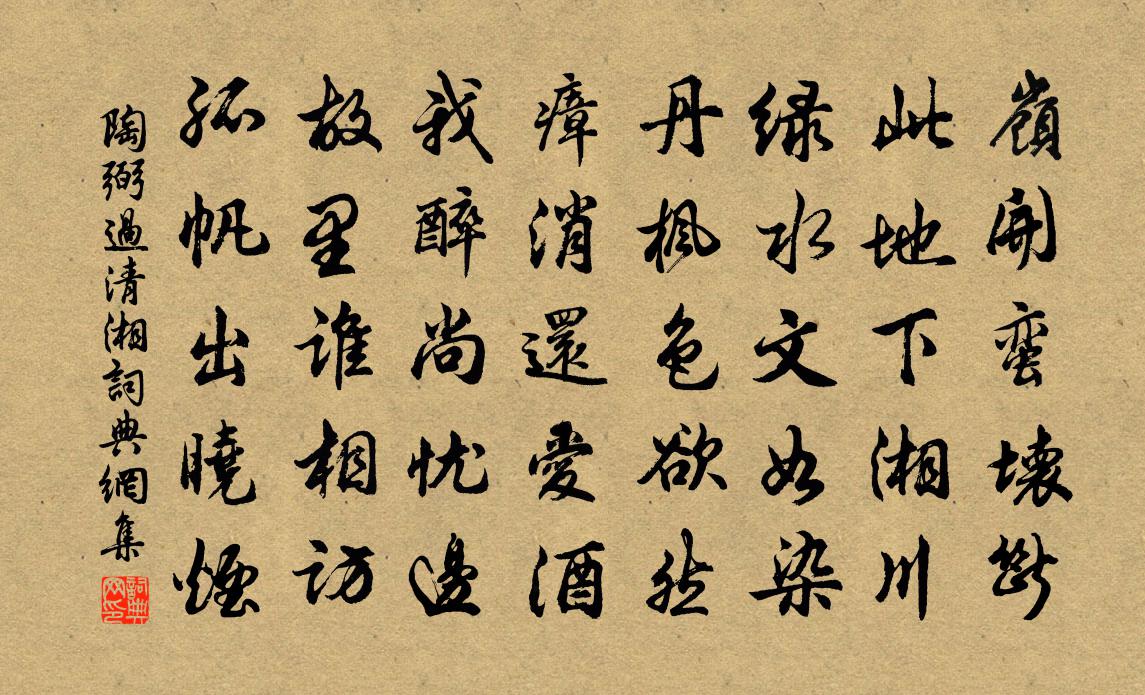 嶺開蛮壊斷
此地下湘川
緑水文如染
丹楓色欲然
瘴消還愛酒
我醉尚忧邊
故里誰相訪
孤帆出曉煙
陶弼過清湘詞典網集
詞典网印